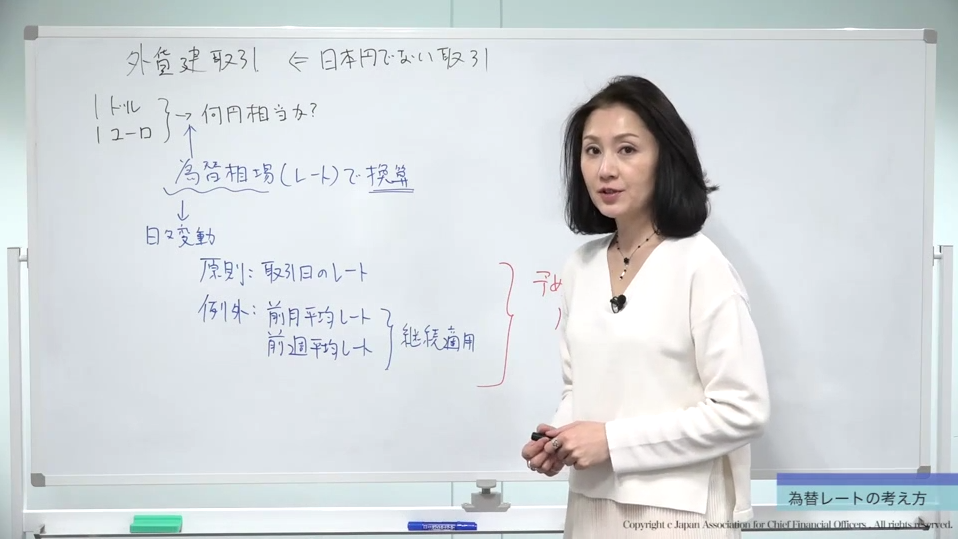 外貨建取引 ⇐ 日本円でない取引
1ドル
1ユーロ
→ 何円相当か?
為替相場(レート)で換算
日々変動
原則: 取引日のレート
例外: 前月平均レート
前週平均レート
継続適用
予め
為替レートの考え方
Copyright c Japan Association for Chief Financial Officers . All rights reserved.